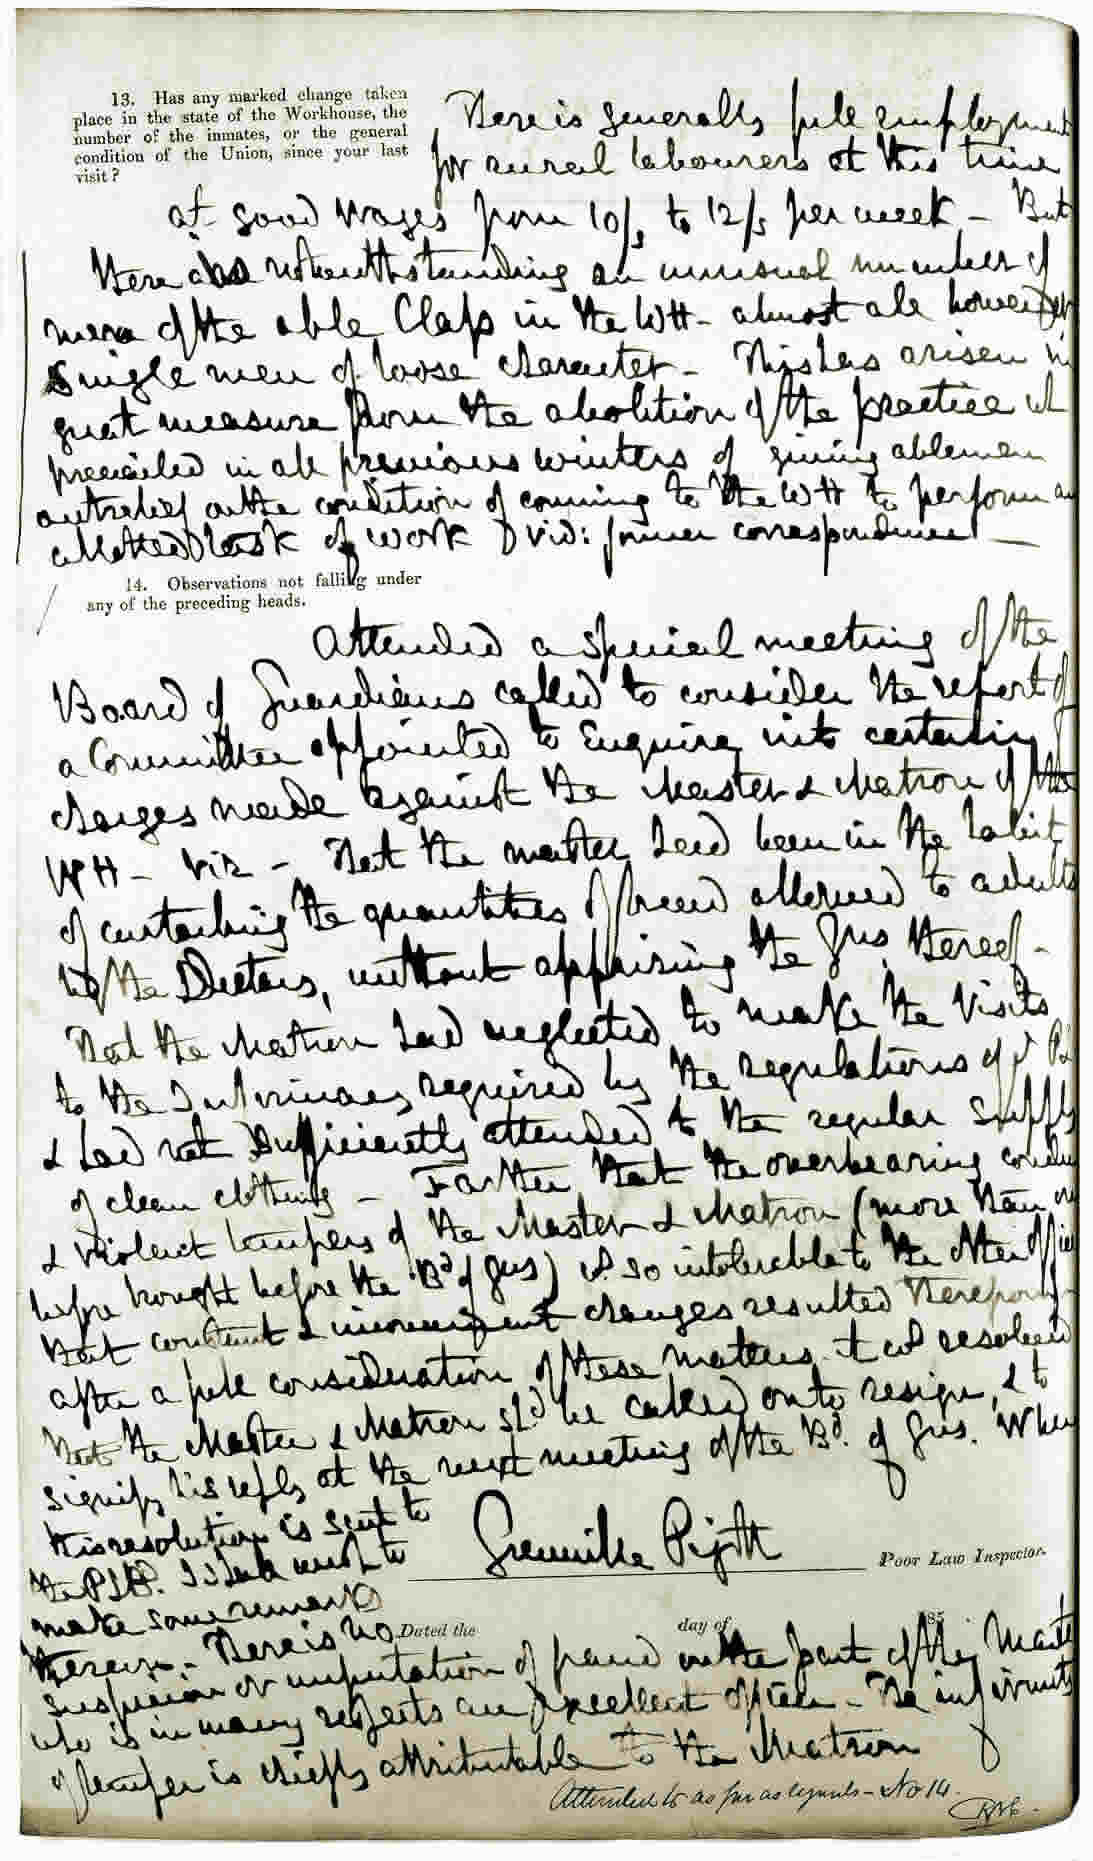 13. Has any marked change taken
place in the state of the Workhouse, the
number of the inmates, or the general
condition of the Union, since your last
visit?
There is generally full employment
for rural labourers at this time
at good wages from 10/s to 12/s per week - But
there notwithstanding an unusual number of
men of the able Class in the WH - almost all however
Single men of loose character - This has arisen in
great measure from the abolition of the practice wh
prevailed in all previous winters of giving ablemen
outrelief on the condition of coming to the WH to perform an
allotted task of work vid: former correspondence -
14. Observations not falling under
any of the preceding heads.
Attended a special meeting of the
Board of Guardians called to consider the report of
a Committee appointed to Enquire into certain
charges made against the Master & Matron of the
WH - viz - That the master had been in the habit
of curtailing the quantities of bread allowed to adults
by the Dietary, without apprising the Gus. thereof -
That the Matron had neglected to make the Visits
to the Infirmary required by the regulations of
& had not Sufficiently attended to the regular supply
of clean clothing - Farther that the overbearing conduct
& violent tempers of the Master & Matron (more than one
before brought before the Bd of Gus) so intolerable to the other
that constant & inconvenient changes resulted therefrom -
after a full consideration of these matters it resolved
that the Master & Matron shd be called on to resign, & to
signify his reply at the next meeting of the Bd. of Gus. When
this resolution is sent to
the PLB. I shall wish to
make some remarks
thereon. - There is no
Grenville Pigott
Poor Law Inspector.
Dated the day of 185
suspicion or imputation of fraud on the part of the Master
who is in many respects an excellent officer - The infirmity
of temper is chiefly attributable to the Matron
Attended to as far as regards - No 14.